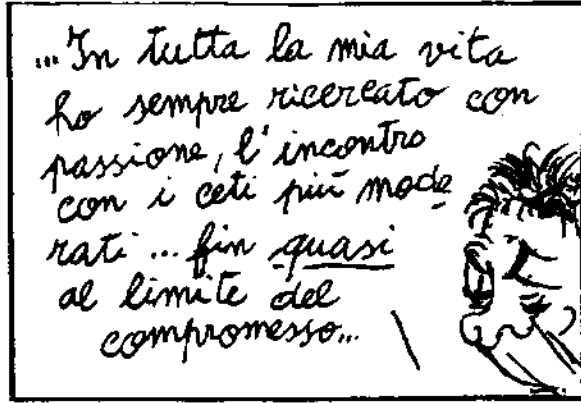 ...In tutta la mia vita
ho sempre ricercato con
passione, l'incontro
con i ceti più mode
rati... fin quasi
al limite del
compromesso...